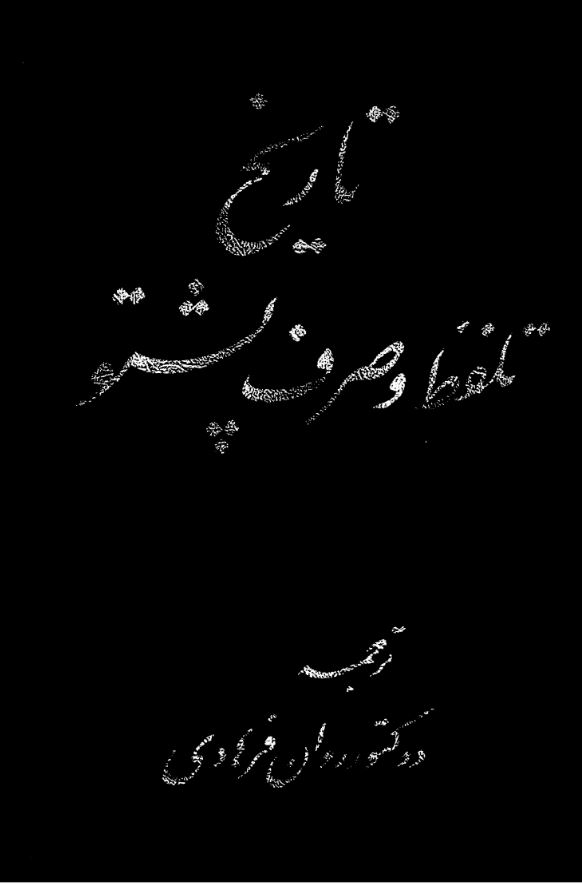 تاریخ
تلفظ و صرف پشتو
ترجمه
دوکتور روان فرهادی